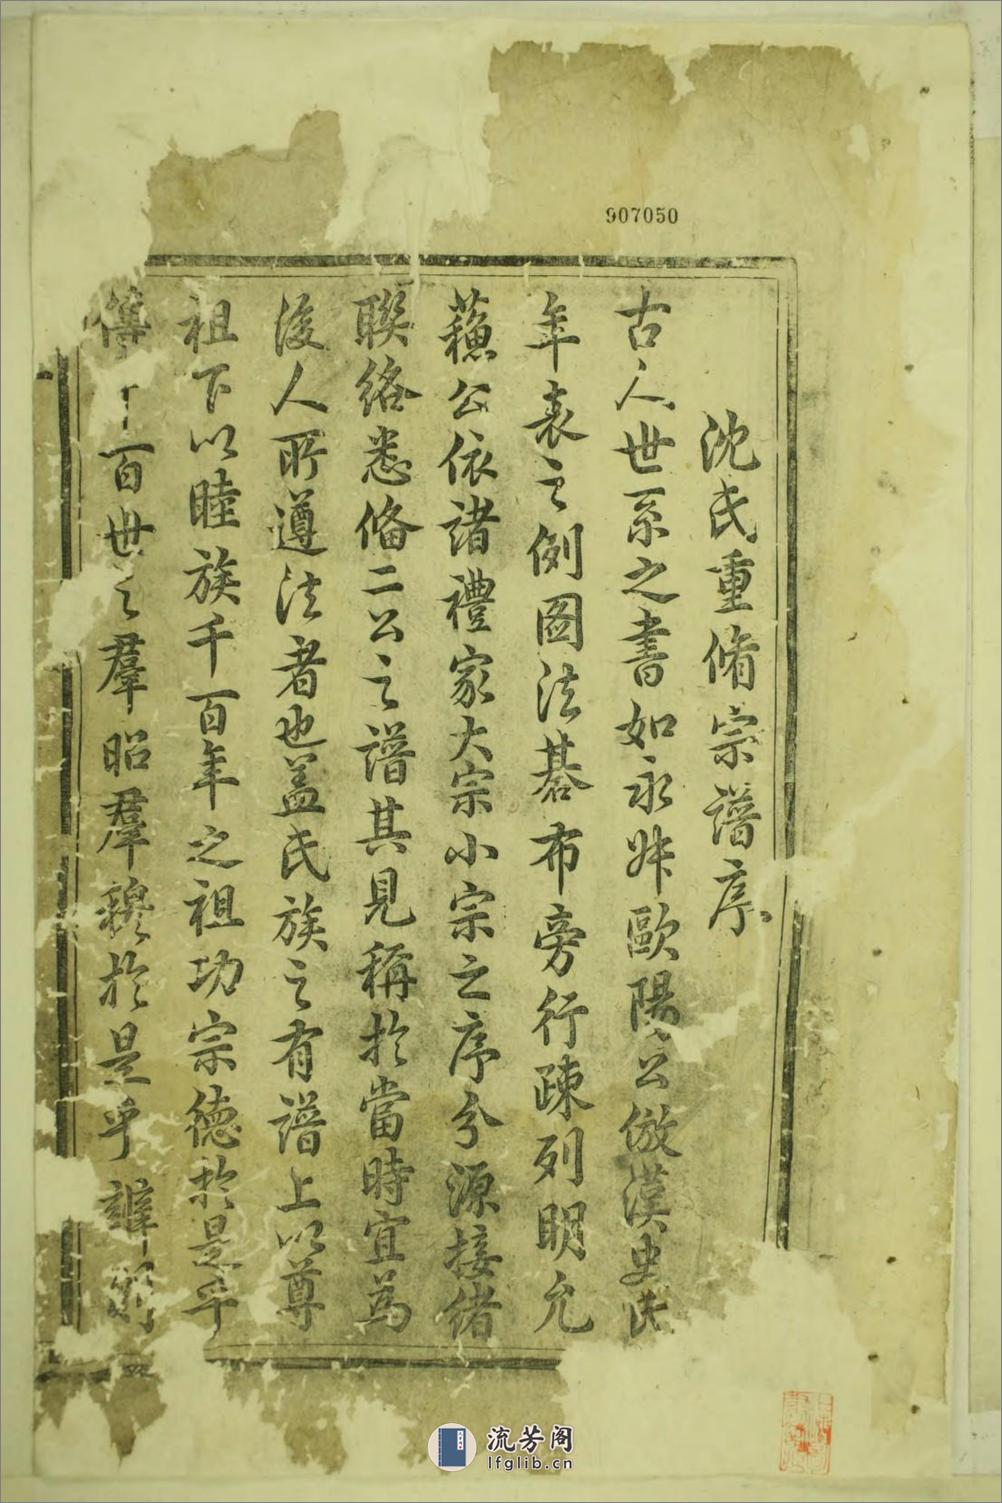 907050
沈氏重脩宗譜序
古人世系之書如永叔歐陽公倣漢史氏
年表之例图法碁布旁行疎列明允
蘓公依諸禮家大宗小宗之序分源接緒
聯絡悉俻二公之譜其見稱於當時宜為
後人所遵法者也盖氏族之有譜上以尊
祖下以睦族千百年之祖功宗德於是乎
傳千百世之羣昭羣穆於是乎辨
流芳阁
lfglib.cn